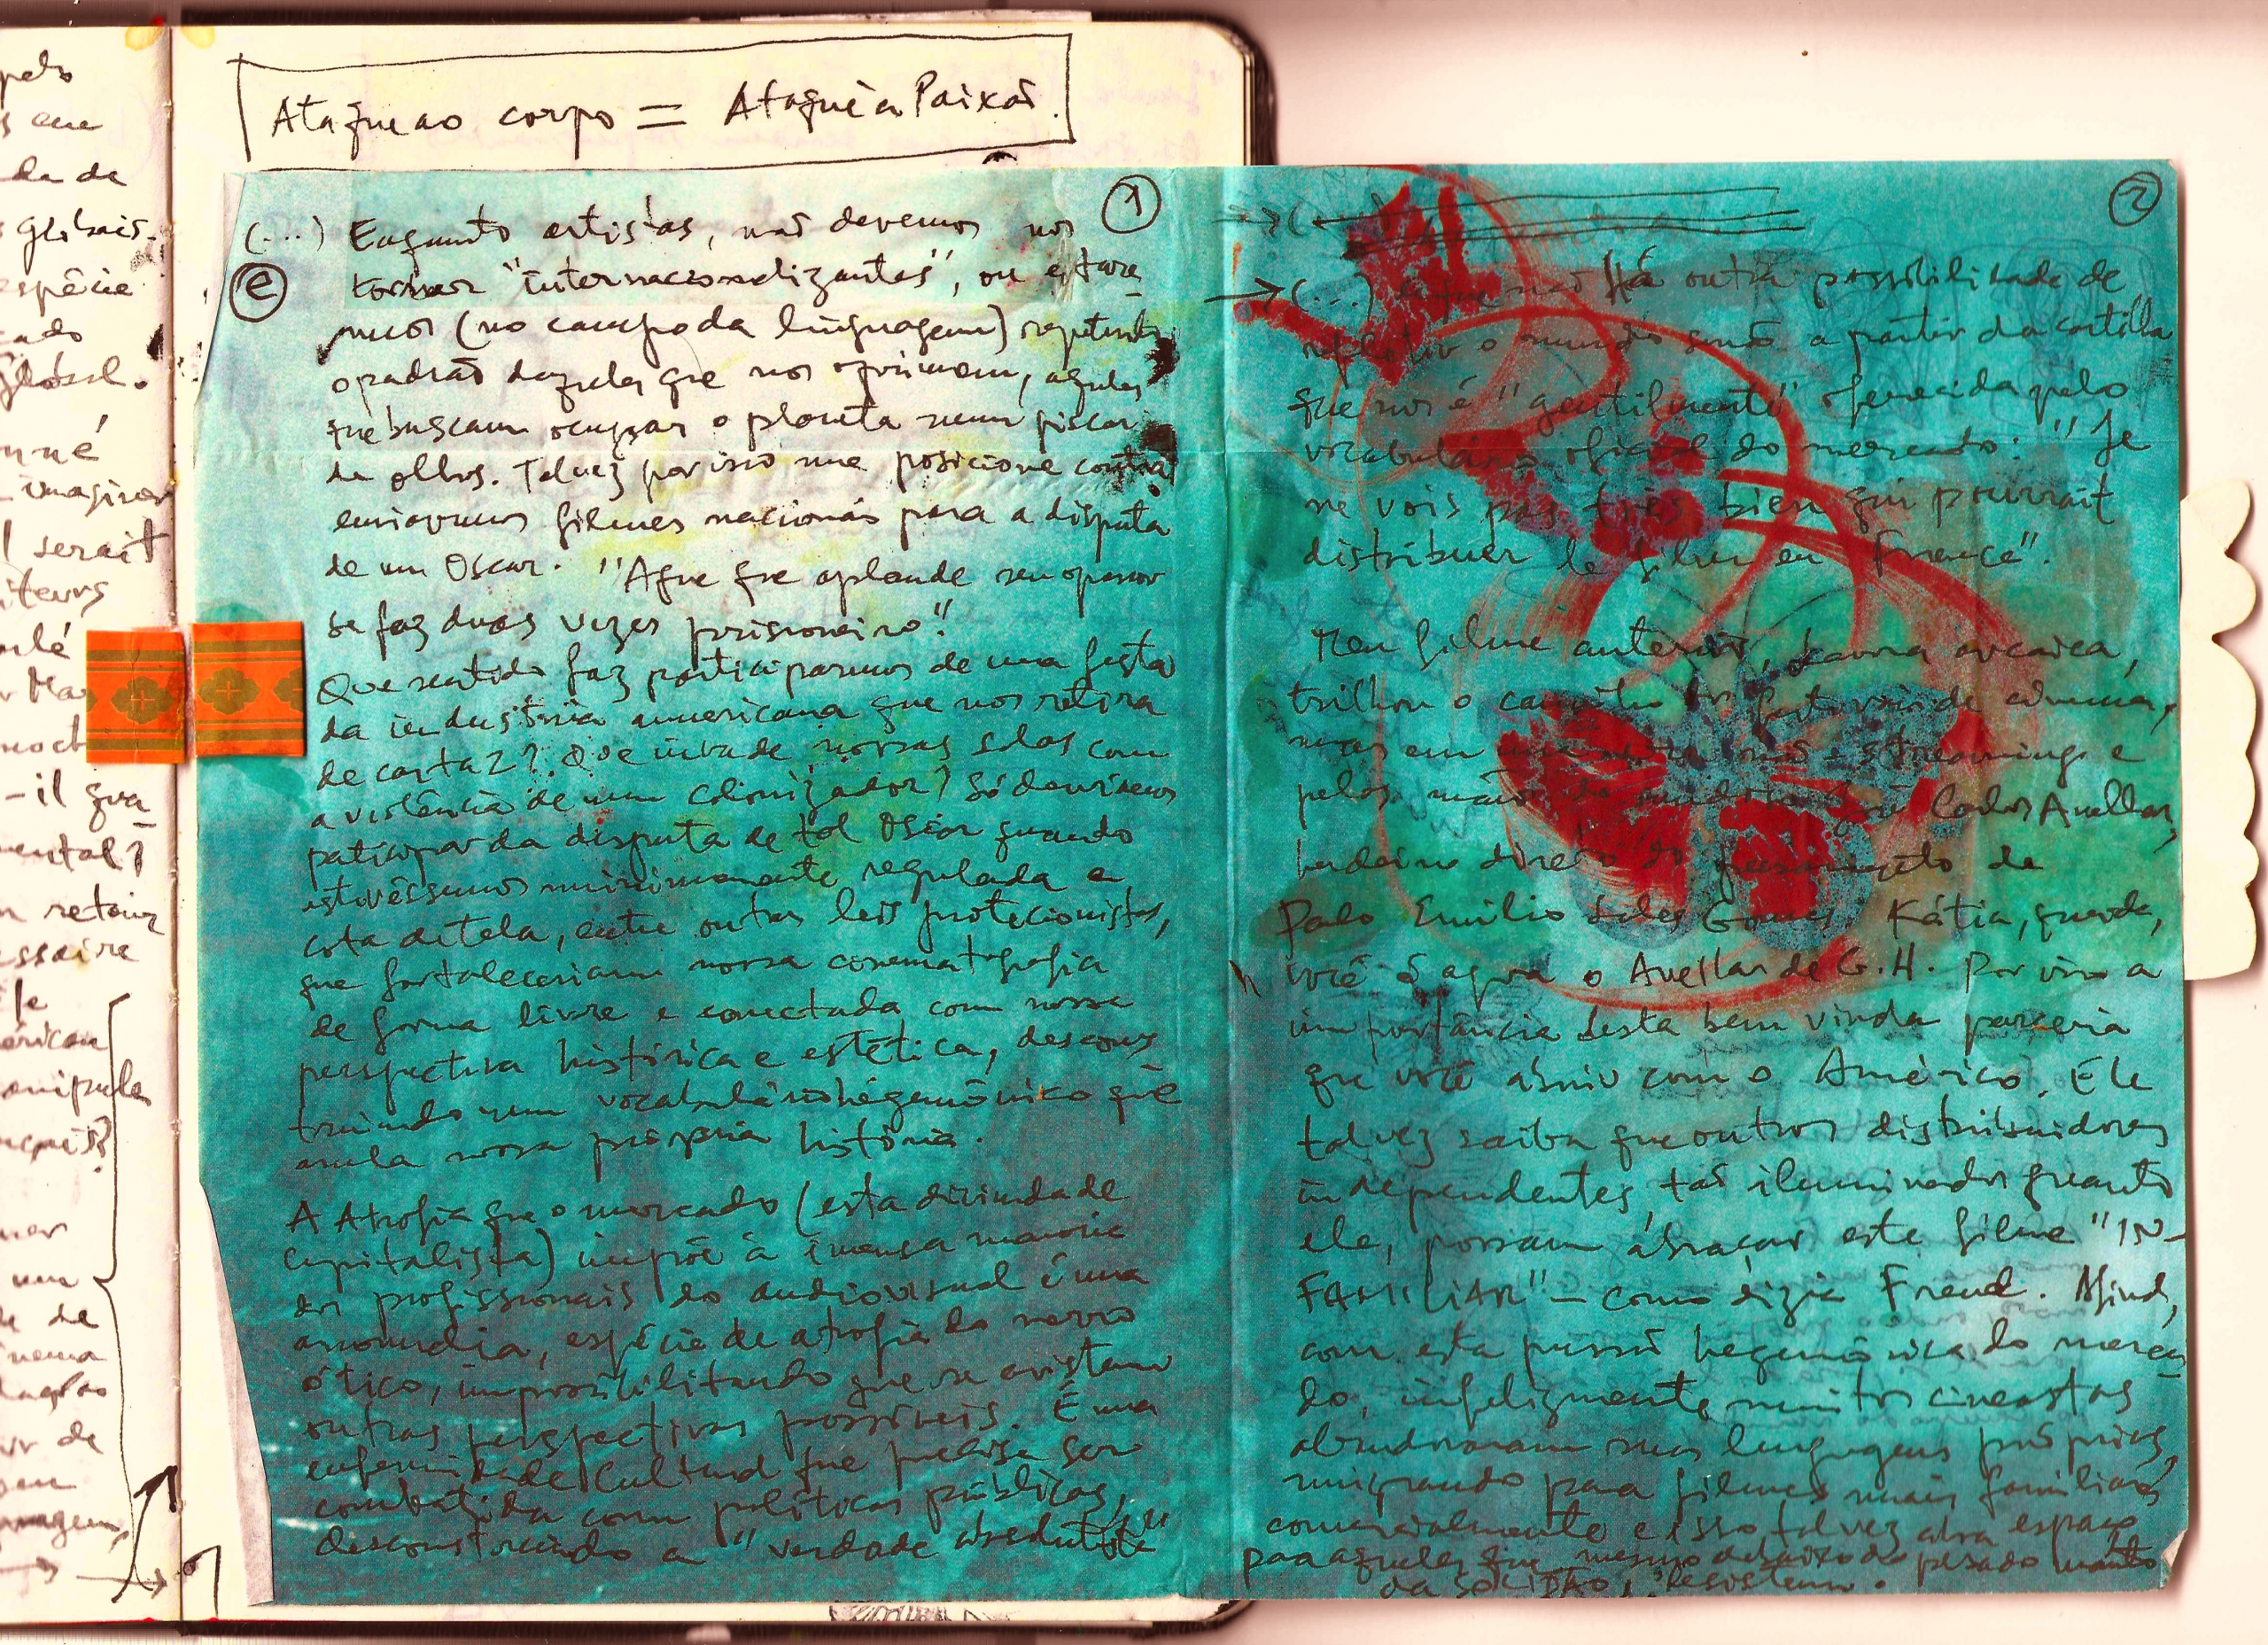 pelo
em
da de
globais.
espécie
cado
global.
nné
imaginer
serait
iteurs
-il qua
mental?
retour
essaire
le
érican
anipule
de
inema
de
Ataque ao corpo = Ataque à Paixão.
1
(...) Enquanto artistas, não devemos nos
e
tornar "internacionalizantes", ou estare-
mos (no campo da linguagem) repetindo
o padrão daqueles que nos oprimem, aqueles
que buscam ocupar o planeta num piscar
de olhos. Talvez por isso me posicione contra
enviarmos filmes nacionais para a disputa
de um Oscar. "Aquele que aplaude seu opressor
se faz duas vezes prisioneiro."
Que sentido faz participarmos de uma festa
da indústria americana que nos retira
de cartaz? Que invade nossas salas com
a violência de um colonizador? Só devíamos
participar da disputa de tal Oscar quando
estivéssemos minimamente regulada a
cota de tela, entre outras leis protecionistas,
que fortaleceriam nossa cinematografia
de forma livre e conectada com nossa
perspectiva histórica e estética, descons-
truindo um vocabulário hegemônico que
anula nossa própria história.
A Atrofia que o mercado (esta divindade
capitalista) impõe à imensa maioria
dos profissionais do audiovisual é uma
anomalia, espécie de atrofia do nervo
ótico, impossibilitando que se avistem
outras perspectivas possíveis. É uma
enfermidade cultural que precisa ser
combatida com políticas públicas,
desconstruindo a "verdade absoluta"
2
(...) de que não há outra possibilidade de
refletir o mundo senão a partir da cartilha
que nos é "gentilmente" oferecida pelo
vocabulário oficial do mercado: "Je
ne vois pas très bien qui pourrait
distribuer le film en France".
Meu filme anterior, Lavoura arcaica,
trilhou o caminho dos festivais de cinema,
mas em uma não streamings e
pelas mãos do José Carlos Avellar,
herdeiro direto do pensamento de
Paulo Emílio Sales Gomes. Kátia, querida,
você é agora o Avellar de G.H. Por isso a
importância desta bem vinda parceria
que você abriu com o Américo. Ele
talvez saiba que outros distribuidores
independentes, tão iluminados quanto
ele, possam abraçar este filme "IN-
FAMILIAR" – como dizia Freud. Afinal,
com esta pressão hegemônica do merca-
do, infelizmente, muitos cineastas
abandonaram suas linguagens próprias,
migrando para filmes mais familiares
comercialmente e isso talvez abra espaço
para aqueles que, mesmo debaixo do pesado manto
da SOLIDÃO, resistem.